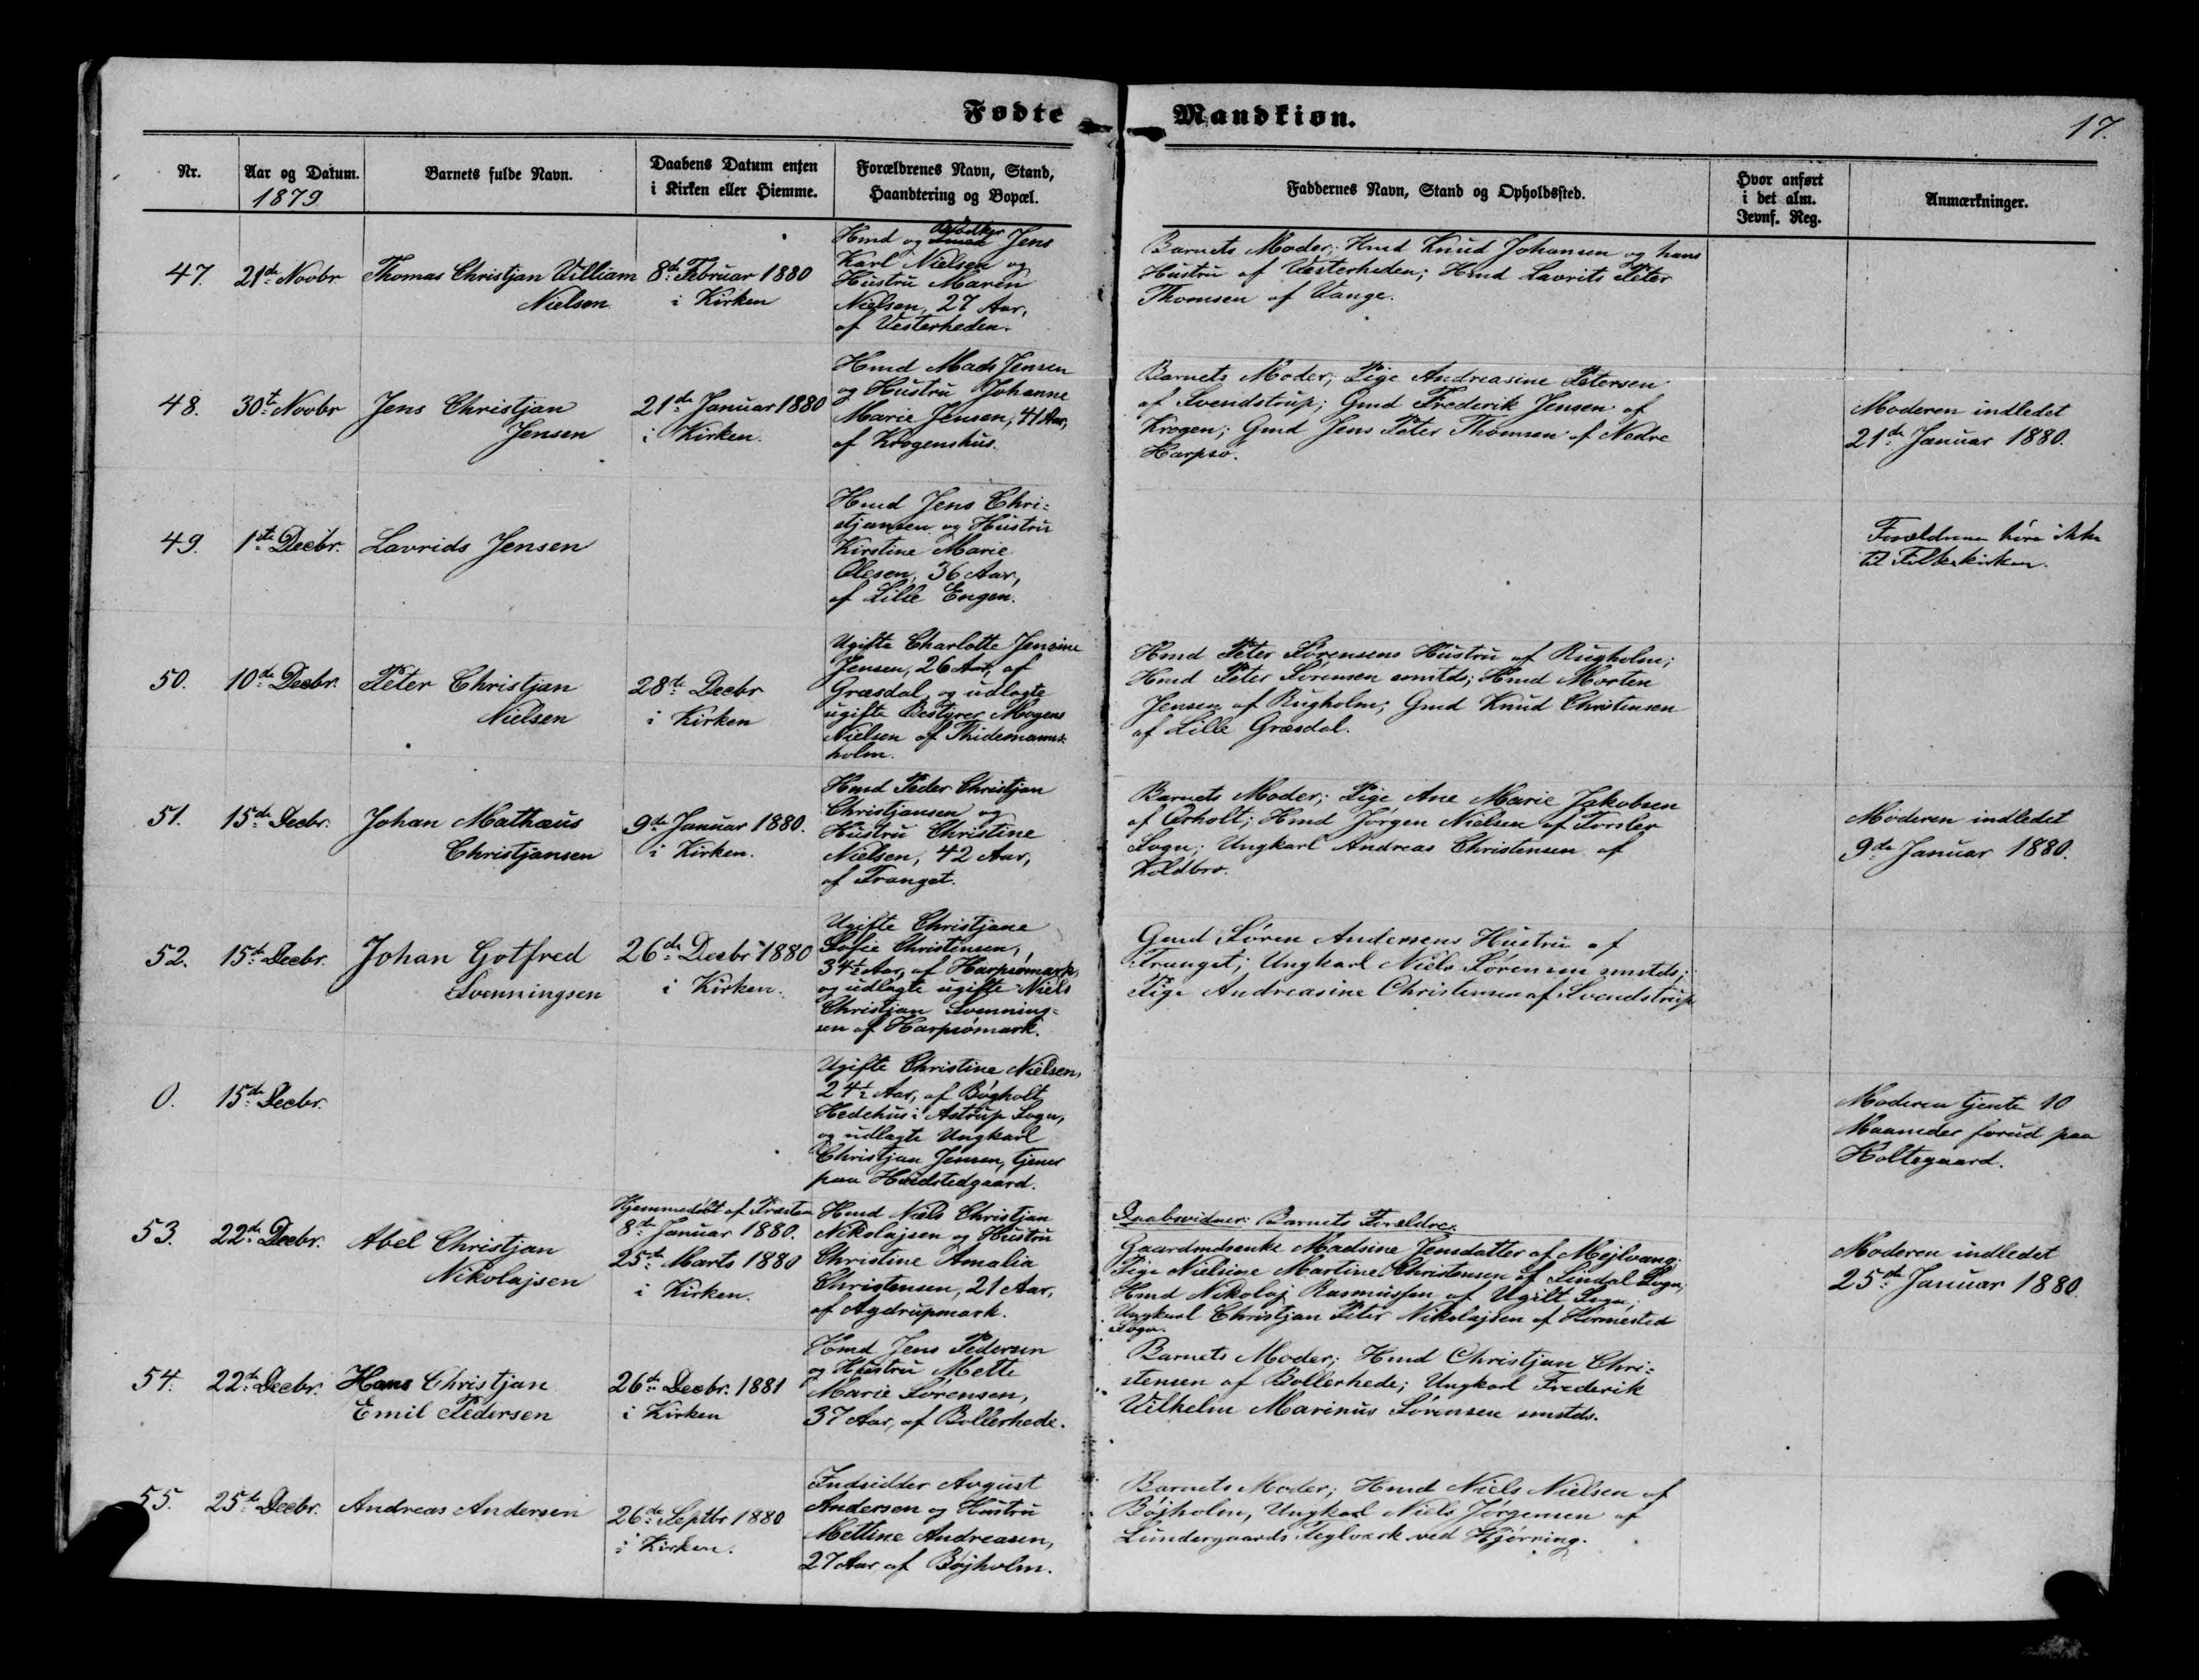 Fødte Mandkiøn.
17.
Nr.
Aar og Datum.
1879
Barnets fulde Navn.
Daabens Datum enten
i Kirken eller Hiemme.
Forældrenes Navn, Stand,
Haandtering og Bopæl.
Faddernes Navn, Stand og Opholdssted.
Hvor anført
i det alm.
Jevnf. Reg.
Anmærkninger.
47.
21de Novbr
Thomas Christjan Villiam
Nielsen
8de Februar 1880
i Kirken
Hmd og Bødker Jens
Karl Nielsen og
Hustru Maren
Nielsen, 27 Aar,
af Vesterheden.
Barnets Moder; Hmd Knud Johansen og hans
Hustru af Vesterheden; Hmd Lavrits Peter
Thomsen af Vange.
48.
30te Novbr
Jens Christjan
Jensen
21de Januar 1880
i Kirken.
Hmd Mads Jensen
og Hustru Johanne
Marie Jensen, 41 Aar,
af Krogenshus.
Barnets Moder; Pige Andreasine Petersen
af Svendstrup; Gmd Frederik Jensen af
Krogen; Gmd Jens Peter Thomsen af Nedre
Harpsø.
Moderen indledet
21de Januar 1880.
49.
1ste Decbr.
Lavrids Jensen
Hmd Jens Chri-
stjansen og Hustru
Kirstine Marie
Olesen, 36 Aar,
af Lille Engen.
Forældrene høre ikke
til Folkekirken.
50.
10de Decbr.
Peter Christjan
Nielsen
28de Decbr
i Kirken
Ugifte Charlotte Jensine
Jensen, 26 Aar, af
Græsdal, og udlagte
ugifte Bestyrer Mogens
Nielsen af Thidemanns-
holm.
Hmd Peter Sørensens Hustru af Rugholm;
Hmd Peter Sørensen smstds; Hmd Morten
Jensen af Rugholm; Gmd Knud Christensen
af Lille Græsdal.
51.
15de Decbr.
Johan Mathæus
Christjansen
9de Januar 1880.
i Kirken.
Hmd Peder Christjan
Christjansen og
Hustru Christine
Nielsen, 42 Aar,
af Tranget.
Barnets Moder; Pige Ane Marie Jakobsen
af Ørholt; Hmd Jørgen Nielsen af Torslev
Sogn; Ungkarl Andreas Christensen af
Koldbro.
Moderen indledet
9de Januar 1880.
52.
15de Decbr.
Johan Gotfred
Svenningsen
26de Decbr 1880
i Kirken.
Ugifte Christjane
Sofie Christensen,
34½ Aar, af Harpsømark,
og udlagte ugifte Niels
Christjan Svenning-
sen af Harpsømark.
Gmd Søren Andersens Hustru af
Tranget; Ungkarl Niels Sørensen smstds;
Pige Andreasine Christensen af Svendstrup
0.
15de Decbr.
Ugifte Christine Nielsen,
24½ Aar, af Bøgholt
Hedehus i Astrup Sogn,
og udlagte Ungkarl
Christjan Jensen, tjener
paa Hædstedgaard.
Moderen tjente 10
Maaneder forud paa
Holtegaard.
53.
22de Decbr.
Abel Christjan
Nikolajsen
Hjemmedøbt af Præsten
8de Januar 1880.
25de Marts 1880
i Kirken.
Hmd Niels Christjan
Nikolajsen og Hustru
Christine Amalia
Christensen, 21 Aar,
af Agdrupmark.
Daabsvidner: Barnets Forældre.
Gaardmdsenke Madsine Jensdatter af Mejlvang;
Pige Nielsine Martine Christensen af Sindal Sogn,
Hmd Nikolaj Rasmussen af Ugilt Sogn,
Ungkarl Christjan Peter Nikolajsen af Hørmested
Sogn.
Moderen indledet
25de Januar 1880.
54.
22de Decbr.
Hans Christjan
Emil Pedersen
26de Decbr. 1881
i Kirken
Hmd Jens Pedersen
og Hustru Mette
Marie Sørensen,
37 Aar, af Bollerhede.
Barnets Moder; Hmd Christjan Chri-
stensen af Bollerhede; Ungkarl Frederik
Vilhelm Marinus Sørensen smstds.
55.
25de Decbr.
Andreas Andersen
26de Septbr 1880
i Kirken.
Indsidder Avgust
Andersen og Hustru
Mettine Andreasen,
27 Aar, af Bøjholm.
Barnets Moder; Hmd Niels Nielsen af
Bøjholm, Ungkarl Niels Jørgensen af
Lundergaards Teglværk ved Hjørring.